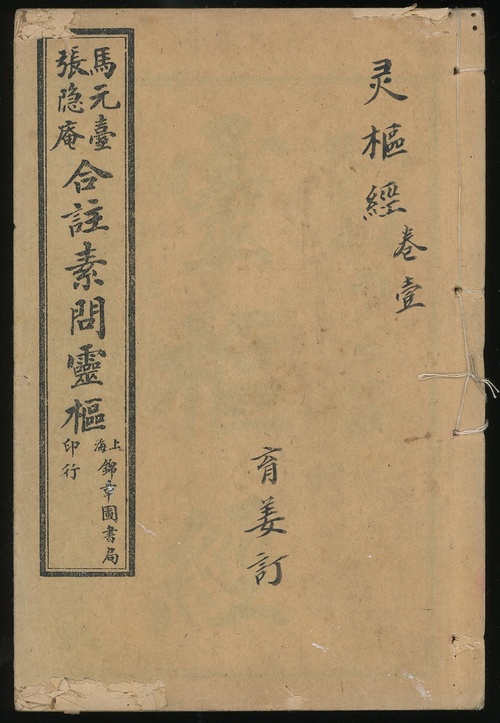 灵樞經
卷壹
育姜訂
馬元臺
張隐庵
合註素問靈樞
上海
錦章圖書局
印行